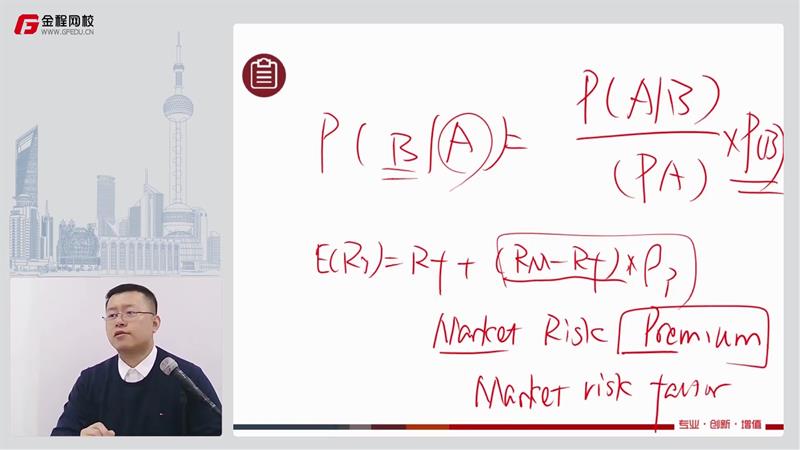 金程网校
WWW.GFEDU.CN
P(B|A)= P(A|B)/(PA) × P(B)
E(Rp)=Rf + (RM-Rf)×βp
Market Risk Premium
Market risk factor
专业·创新·增值